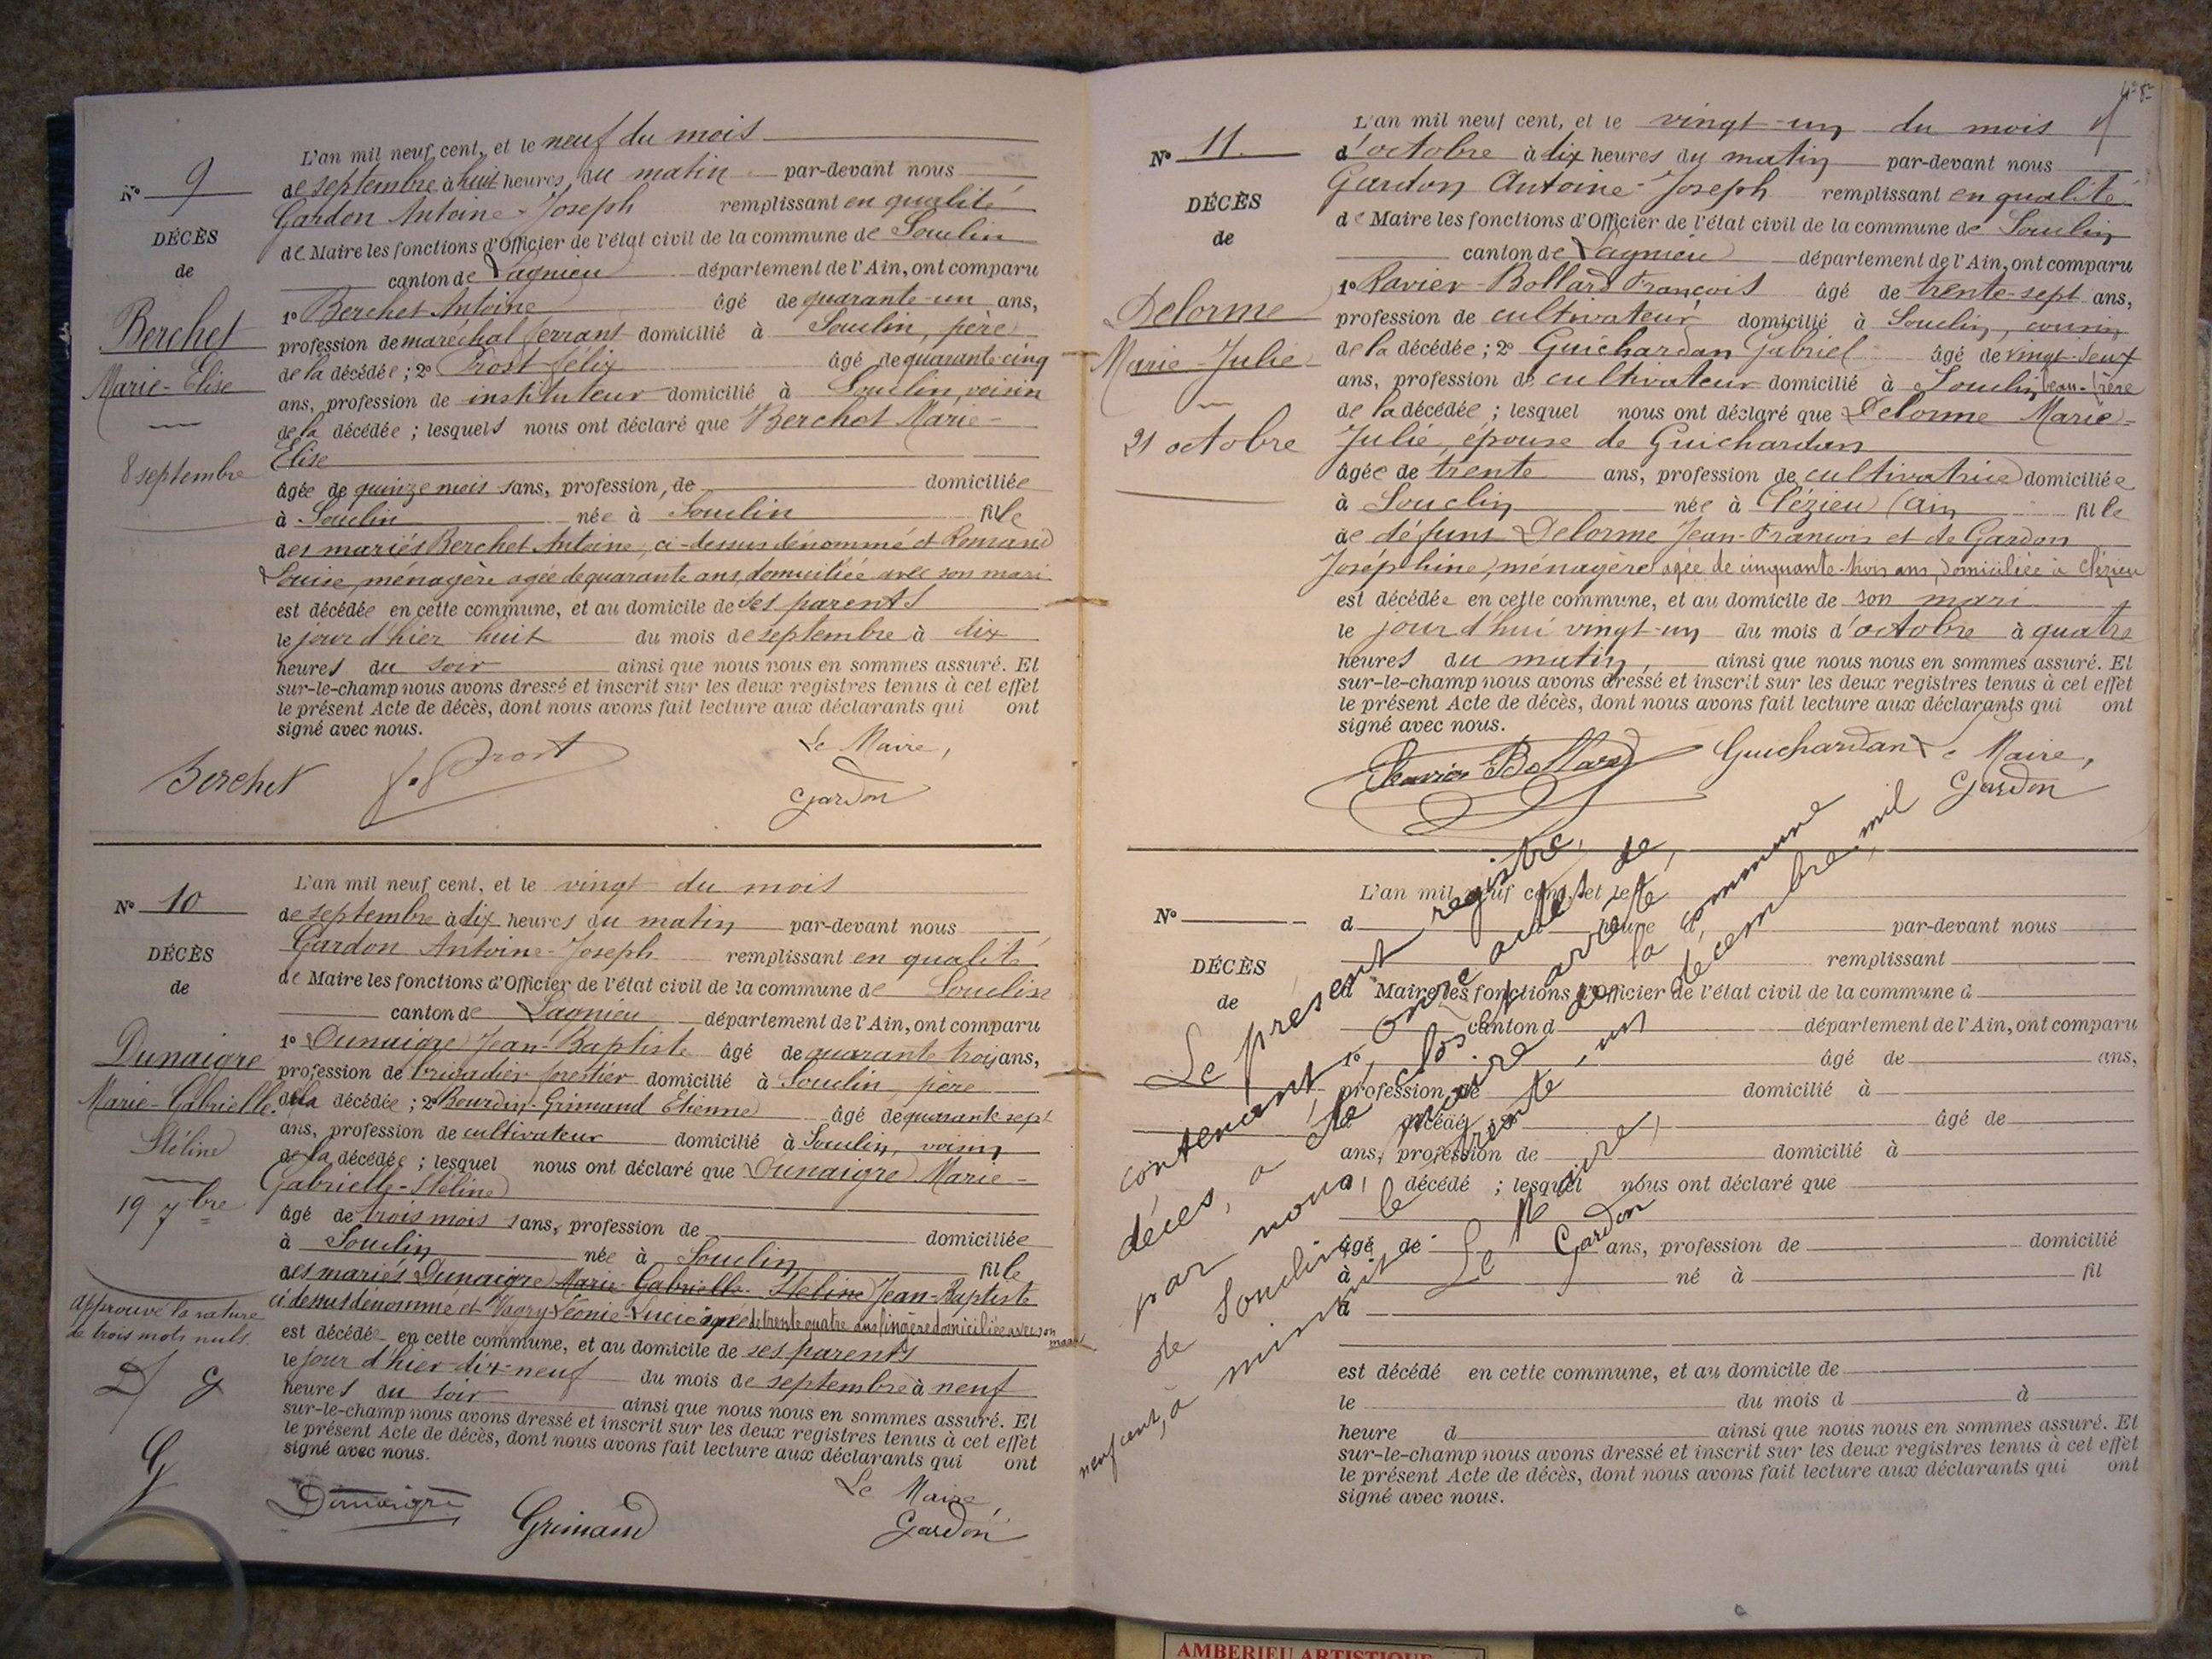 N° 9
DÉCÈS
de
Berchet
Marie-Elise
8 septembre
L'an mil neuf cent, et le neuf du mois
de septembre à huit heures du matin par-devant nous
Gardon Antoine-Joseph remplissant en qualité
de Maire les fonctions d'Officier de l'état civil de la commune de Souclin
canton de Lagnieu département de l'Ain, ont comparu
1° Berchet Antoine âgé de quarante-un ans,
profession de maréchal ferrant domicilié à Souclin, père
de la décédée ; 2° Prost Félix âgé de quarante cinq
ans, profession de instituteur domicilié à Souclin, voisin
de la décédée ; lesquels nous ont déclaré que Berchet Marie-
Elise
âgée de quinze mois sans, profession, de domiciliée
à Souclin née à Souclin fille
des mariés Berchet Antoine, ci-dessus dénommé et Romand
Louise, ménagère agée de quarante ans, domiciliée avec son mari
est décédée en cette commune, et au domicile de ses parents
le jour d'hier huit du mois de septembre à dix
heures du soir ainsi que nous nous en sommes assuré. Et
sur-le-champ nous avons dressé et inscrit sur les deux registres tenus à cet effet
le présent Acte de décès, dont nous avons fait lecture aux déclarants qui ont
signé avec nous.
Le Maire,
Berchet F. Prost Gardon
N° 10
DÉCÈS
de
Dunaigre
Marie-Gabrielle
Stéline
19 7bre
approuvé la rature
de trois mots nuls.
D G
G
L'an mil neuf cent, et le vingt du mois
de septembre à dix heures du matin par-devant nous
Gardon Antoine-Joseph remplissant en qualité
de Maire les fonctions d'Officier de l'état civil de la commune de Souclin
canton de Lagnieu département de l'Ain, ont comparu
1° Dunaigre Jean-Baptiste âgé de quarante trois ans,
profession de brigadier forestier domicilié à Souclin, père
de la décédée ; 2° Bourdin-Grimaud Etienne âgé de quarante sept
ans, profession de cultivateur domicilié à Souclin, voisin
de la décédée ; lesquel nous ont déclaré que Dunaigre Marie-
Gabrielle-Stéline
âgé de trois mois sans, profession de domiciliée
à Souclin née à Souclin fille
des mariés Dunaigre Marie-Gabrielle-Stéline Jean-Baptiste
ci-dessus dénommé et Léonie-Lucie agée de trente quatre ans lingère domiciliée avec son mari
est décédée en cette commune, et au domicile de ses parents
le jour d'hier dix-neuf du mois de septembre à neuf
heures du soir ainsi que nous nous en sommes assuré. Et
sur-le-champ nous avons dressé et inscrit sur les deux registres tenus à cet effet
le présent Acte de décès, dont nous avons fait lecture aux déclarants qui ont
signé avec nous.
Le Maire
Dunaigre Grimaud Gardon
N° 11
DÉCÈS
de
Delorme
Marie-Julie
21 octobre
L'an mil neuf cent, et le vingt-un du mois
d'octobre à dix heures du matin par-devant nous
Gardon Antoine-Joseph remplissant en qualité
de Maire les fonctions d'Officier de l'état civil de la commune de Souclin
canton de Lagnieu département de l'Ain, ont comparu
1° Ravier-Bollard François âgé de trente-sept ans,
profession de cultivateur domicilié à Souclin, cousin
de la décédée ; 2° Guichardan Gabriel âgé de vingt-deux
ans, profession de cultivateur domicilié à Souclin, beau-frère
de la décédée ; lesquel nous ont déclaré que Delorme Marie-
Julie, épouse de Guichardan
âgée de trente ans, profession de cultivatrice domiciliée
à Souclin née à Clézieu (Ain fille
de défunt Delorme Jean-François et de Gardon
Joséphine, ménagère agée de cinquante-trois ans, domiciliée à Clézieu
est décédée en cette commune, et au domicile de son mari
le jour d'hui vingt-un du mois d'octobre à quatre
heures du matin, ainsi que nous nous en sommes assuré. Et
sur-le-champ nous avons dressé et inscrit sur les deux registres tenus à cet effet
le présent Acte de décès, dont nous avons fait lecture aux déclarants qui ont
signé avec nous.
Ravier Bollard Guichardan Le Maire,
Gardon
N°
DÉCÈS
de
L'an mil neuf cent, et le
d à heure d par-devant nous
remplissant
d Maire les fonctions d'Officier de l'état civil de la commune d
canton d département de l'Ain, ont comparu
1° âgé de ans,
profession de domicilié à
d décédé ; 2° âgé de
ans, profession de domicilié à
d décédé ; lesquel nous ont déclaré que
âgé de ans, profession de domicilié
à né à fil
d
est décédé en cette commune, et au domicile de
le du mois d à
heure d ainsi que nous nous en sommes assuré. Et
sur-le-champ nous avons dressé et inscrit sur les deux registres tenus à cet effet
le présent Acte de décès, dont nous avons fait lecture aux déclarants qui ont
signé avec nous.
Le présent registre,
contenant onze actes de
décès, a été clos et arrêté
par nous, maire de la commune
de Souclin le trente-un décembre mil
neuf cent, à minuit
Le Maire,
Gardon
AMBERIEU ARTISTIQUE